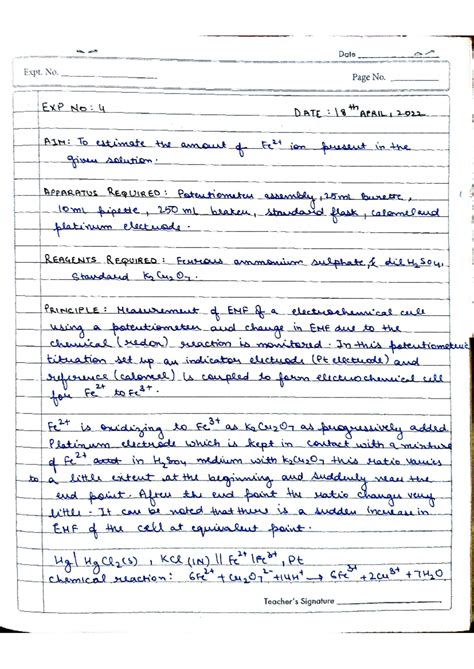 Date
Expt. No.
Page No.
EXP NO: 4
DATE: 18th APRIL, 2022
AIM: To estimate the amount of Fe²⁺ ion present in the
given solution.
APPARATUS REQUIRED: Potentiometer assembly, 25ml burette,
10ml pipette, 250 mL beaker, standard flask, calomel and
platinum electrode.
REAGENTS REQUIRED: Ferrous ammonium sulphate, & dil H₂SO₄,
Standard K₂Cr₂O₇.
PRINCIPLE: Measurement of EMF of a electrochemical cell
using a potentiometer and change in EMF due to the
chemical (redox) reaction is monitored. In this potentiometric
titration set up an indicator electrode (Pt electrode) and
reference (calomel) is coupled to form electrochemical cell
for Fe²⁺ to Fe³⁺.
Fe²⁺ is oxidizing to Fe³⁺ as K₂Cr₂O₇ as progressively added
Platinum electrode which is kept in contact with a mixture
of Fe²⁺ in H₂SO₄ medium with K₂Cr₂O₇ this ratio varies
to a little extent at the beginning and suddenly near the
end point. After the end point the ratio changes very
little. It can be noted that there is a sudden increase in
EMF of the cell at equivalent point.
Hg | HgCl₂(s), KCl (1N) || Fe²⁺ | Fe³⁺, Pt
Chemical reaction: 6Fe²⁺ + Cr₂O₇²⁻ + 14H⁺ → 6Fe³⁺ + 2Cr³⁺ + 7H₂O
Teacher's Signature